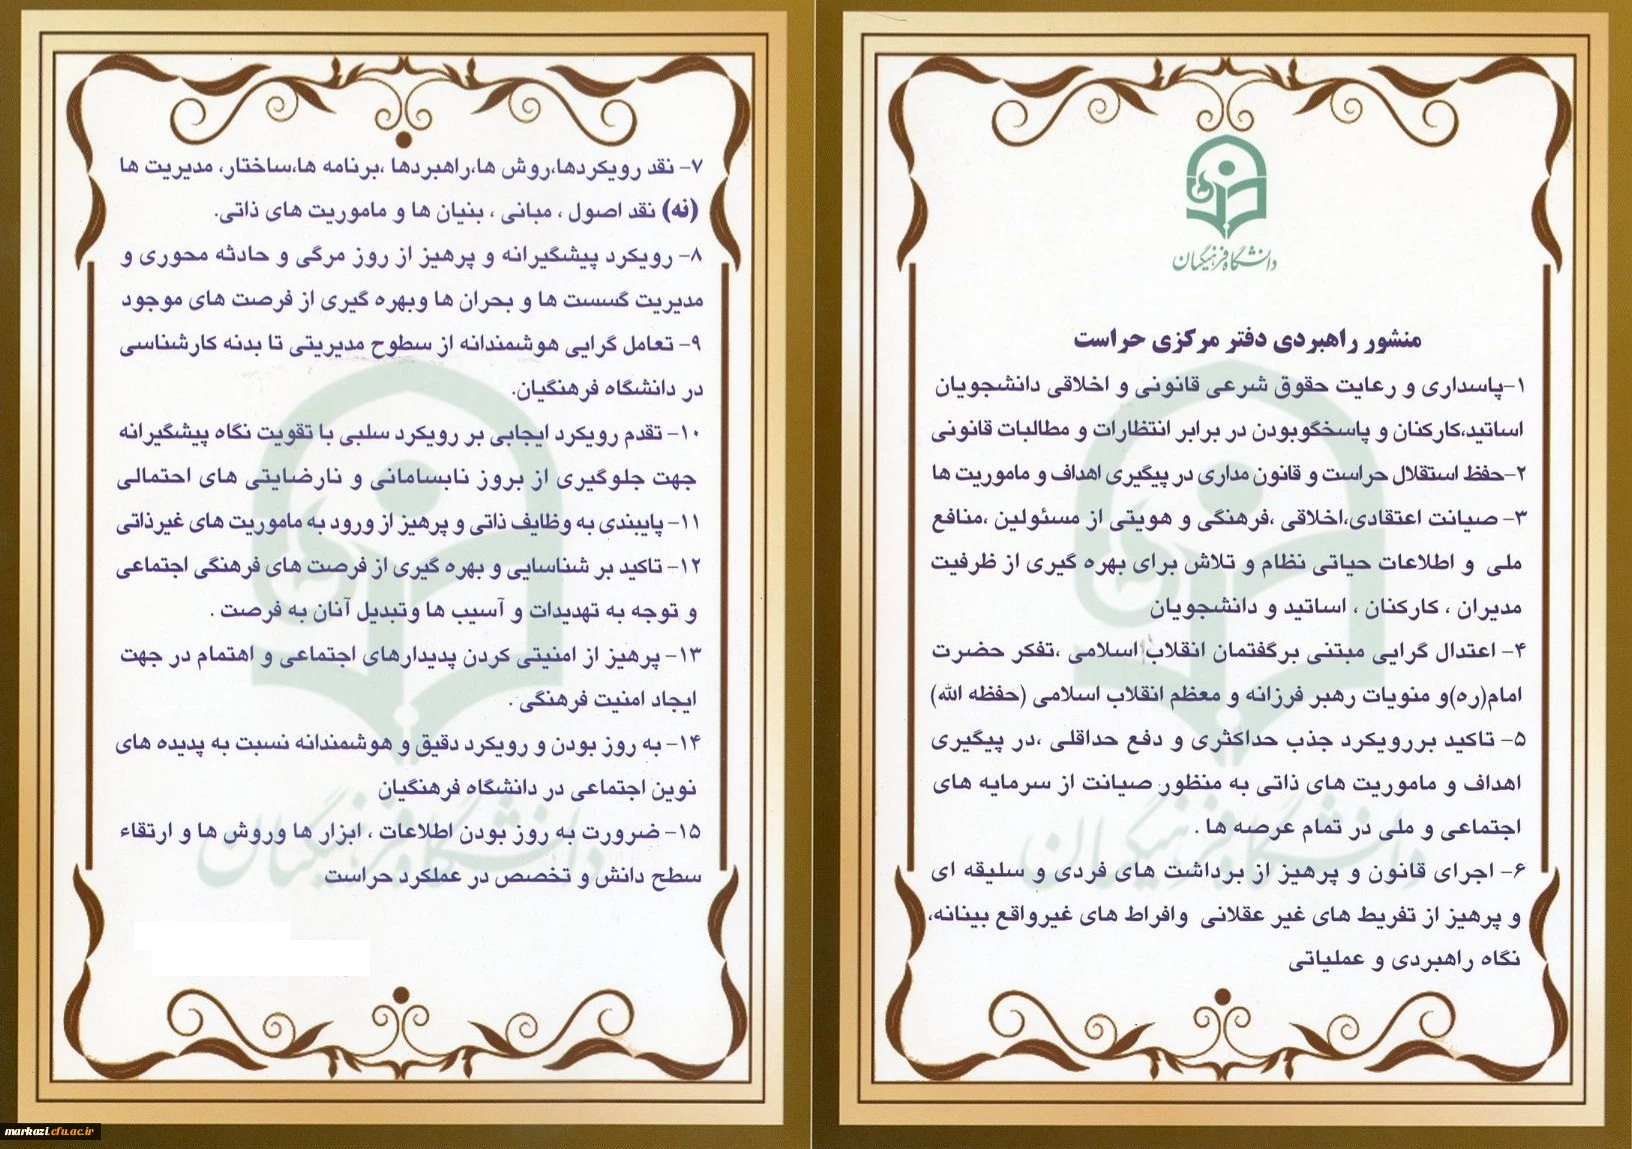 دانشگاه فرهنگیان
منشور راهبردی دفتر مرکزی حراست
۱-پاسداری و رعایت حقوق شرعی قانونی و اخلاقی دانشجویان
اساتید،کارکنان و پاسخگوبودن در برابر انتظارات و مطالبات قانونی
۲-حفظ استقلال حراست و قانون مداری در پیگیری اهداف و ماموریت ها
۳- صیانت اعتقادی،اخلاقی ،فرهنگی و هویتی از مسئولین ،منافع
ملی و اطلاعات حیاتی نظام و تلاش برای بهره گیری از ظرفیت
مدیران ، کارکنان ، اساتید و دانشجویان
۴- اعتدال گرایی مبتنی برگفتمان انقلاب اسلامی ،تفکر حضرت
امام(ره)و منویات رهبر فرزانه و معظم انقلاب اسلامی (حفظه الله)
۵- تاکید بررویکرد جذب حداکثری و دفع حداقلی ،در پیگیری
اهداف و ماموریت های ذاتی به منظور صیانت از سرمایه های
اجتماعی و ملی در تمام عرصه ها .
۶- اجرای قانون و پرهیز از برداشت های فردی و سلیقه ای
و پرهیز از تفریط های غیر عقلانی وافراط های غیرواقع بینانه،
نگاه راهبردی و عملیاتی
۷- نقد رویکردها،روش ها،راهبردها ،برنامه ها،ساختار، مدیریت ها
(نه) نقد اصول ، مبانی ، بنیان ها و ماموریت های ذاتی.
۸- رویکرد پیشگیرانه و پرهیز از روز مرگی و حادثه محوری و
مدیریت گسست ها و بحران ها وبهره گیری از فرصت های موجود
۹- تعامل گرایی هوشمندانه از سطوح مدیریتی تا بدنه کارشناسی
در دانشگاه فرهنگیان.
۱۰- تقدم رویکرد ایجابی بر رویکرد سلبی با تقویت نگاه پیشگیرانه
جهت جلوگیری از بروز نابسامانی و نارضایتی های احتمالی
۱۱- پایبندی به وظایف ذاتی و پرهیز از ورود به ماموریت های غیرذاتی
۱۲- تاکید بر شناسایی و بهره گیری از فرصت های فرهنگی اجتماعی
و توجه به تهدیدات و آسیب ها وتبدیل آنان به فرصت .
۱۳- پرهیز از امنیتی کردن پدیدارهای اجتماعی و اهتمام در جهت
ایجاد امنیت فرهنگی .
۱۴- به روز بودن و رویکرد دقیق و هوشمندانه نسبت به پدیده های
نوین اجتماعی در دانشگاه فرهنگیان
۱۵- ضرورت به روز بودن اطلاعات ، ابزار ها وروش ها و ارتقاء
سطح دانش و تخصص در عملکرد حراست
markazi.cfu.ac.ir